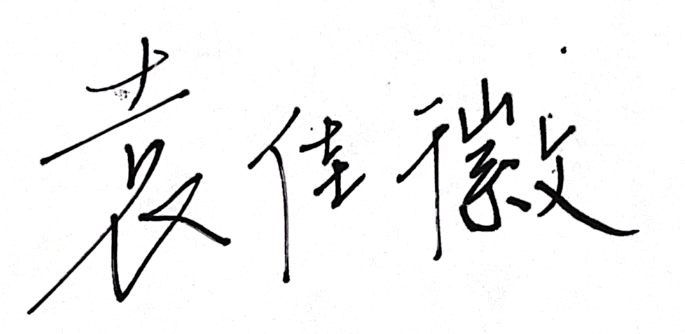 袁佳徽